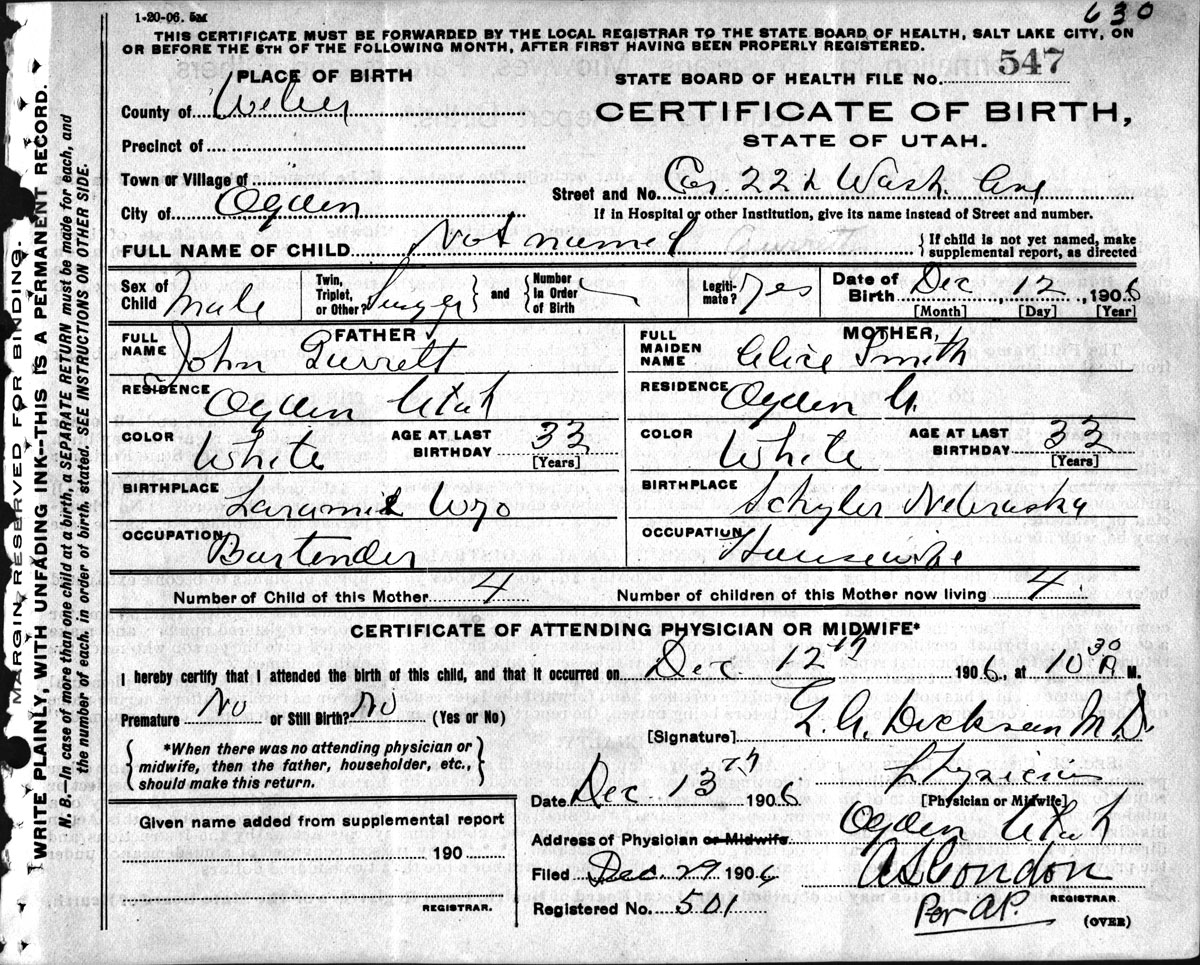 1-20-06. 5M
630
THIS CERTIFICATE MUST BE FORWARDED BY THE LOCAL REGISTRAR TO THE STATE BOARD OF HEALTH, SALT LAKE CITY, ON
OR BEFORE THE 5TH OF THE FOLLOWING MONTH, AFTER FIRST HAVING BEEN PROPERLY REGISTERED.
PLACE OF BIRTH
STATE BOARD OF HEALTH FILE NO. 547
County of Weber
CERTIFICATE OF BIRTH,
STATE OF UTAH.
Precinct of
Town or Village of
Street and No. Cor. 22 & Wash. Ave
City of Ogden
If in Hospital or other Institution, give its name instead of Street and number.
FULL NAME OF CHILD Not named Gurrett
{If child is not yet named, make
supplemental report, as directed
Sex of Child Male
Twin, Triplet, or Other?
and {Number In Order of Birth
Legiti-mate? Yes
Date of Birth Dec 12, 1906
[Month] [Day] [Year]
FATHER
MOTHER,
FULL NAME John Gurrett
FULL MAIDEN NAME Alice Smith
RESIDENCE Ogden Utah
RESIDENCE Ogden U.
COLOR White AGE AT LAST BIRTHDAY 33 [Years]
COLOR White AGE AT LAST BIRTHDAY 33 [Years]
BIRTHPLACE Laramie Wyo
BIRTHPLACE Schyler Nebraska
OCCUPATION Bartender
OCCUPATION Housewife
Number of Child of this Mother 4 Number of children of this Mother now living 4
CERTIFICATE OF ATTENDING PHYSICIAN OR MIDWIFE*
I hereby certify that I attended the birth of this child, and that it occurred on Dec. 12th 1906, at 10 30 A M.
Premature No or Still Birth? No (Yes or No)
[Signature] Dickson M.D.
{*When there was no attending physician or
midwife, then the father, householder, etc.,
should make this return.}
Physician
Date Dec 13th 1906 [Physician or Midwife]
Given name added from supplemental report
190
REGISTRAR.
Address of Physician or Midwife Ogden Utah
Filed Dec 29 1906 A S Condon
REGISTRAR.
Registered No. 501 Per A.P.
(OVER)
MARGIN RESERVED FOR BINDING.
WRITE PLAINLY, WITH UNFADING INK--THIS IS A PERMANENT RECORD.
N. B.—In case of more than one child at a birth, a SEPARATE RETURN must be made for each, and
the number of each, in order of birth, stated. SEE INSTRUCTIONS ON OTHER SIDE.